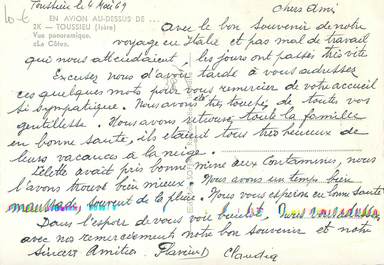 Toussieu le 4 Mai 69
10-6
EN AVION AU-DESSUS DE ...
2K — TOUSSIEU (Isère)
Vue panoramique.
«Le Côteau».
Chers Ami
avec le bon souvenir de notre
voyage en Italie et pas mal de travail
qui nous attendaient. les jours ont passés très vite
Excusez nous d'avoir tardé à vous adresser
ces quelques mots pour vous remercier de votre accueil
si sympatique. Nous avons été touchés, de toutes vos
gentillesse. Nous avons retrouvé toute la famille
en bonne santé, ils étaient tous très heureux de
leurs vacances a la neige.
avait pris bonne mine aux Contamines, nous
l'avons trouvé bien mieux. Nous avons un temps bien
maussade, souvent de la pluie. Nous vous espérons en bonne santé
Dans l'espoir de vous voir bientôt,
avec nos remerciement notre bon souvenir et notre
sincère Amitiés.
Claudia